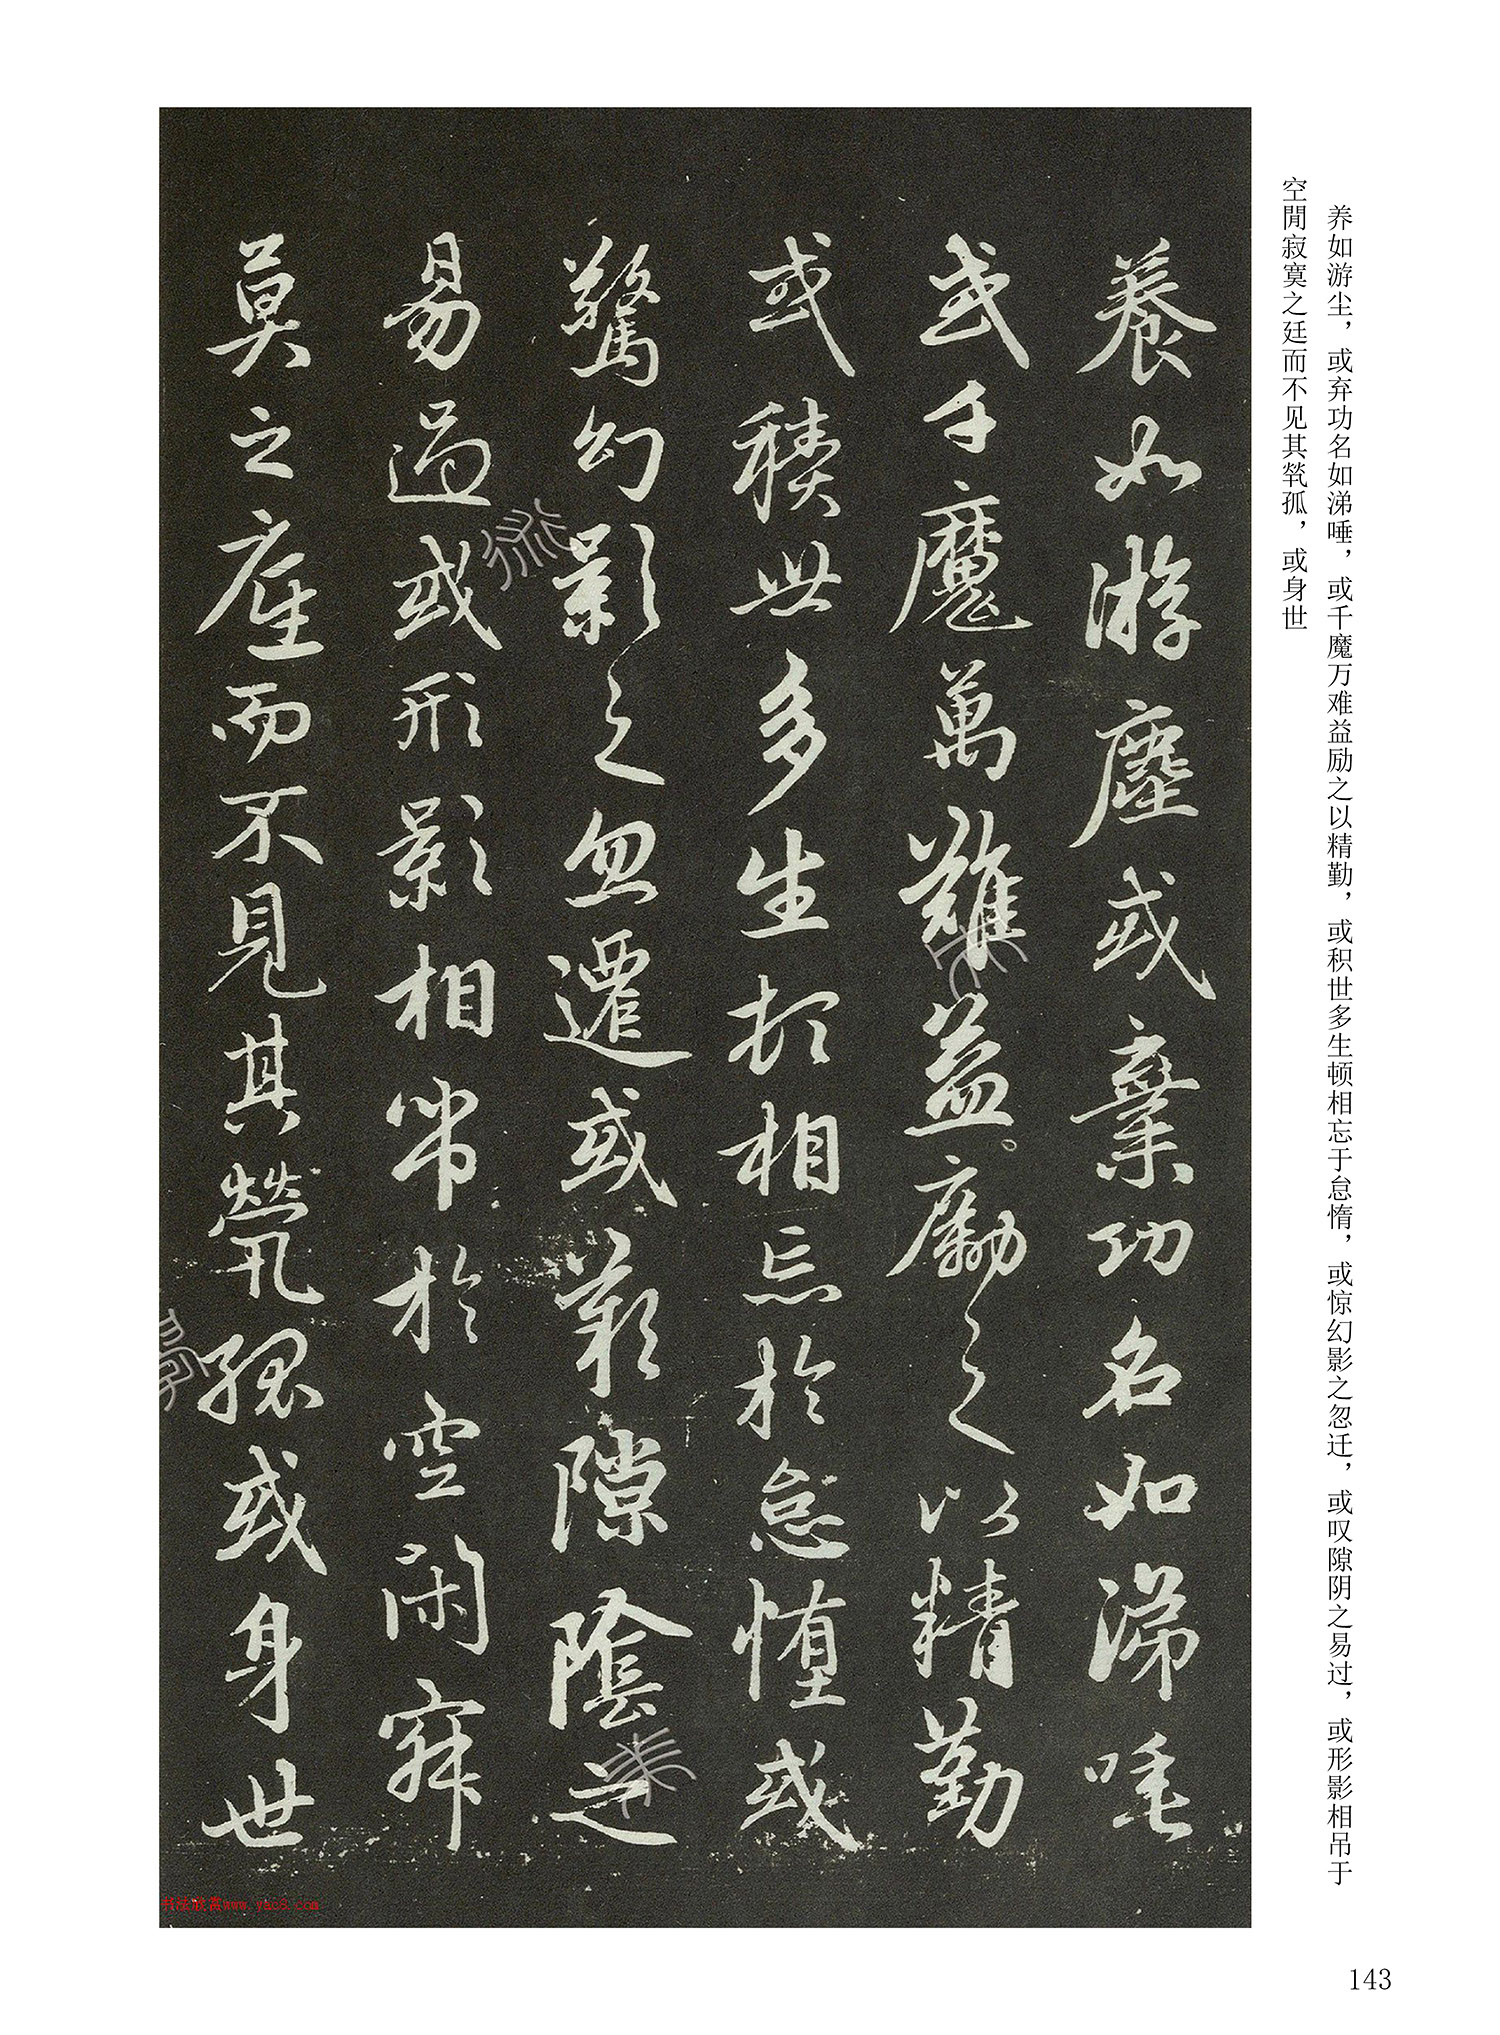 养如游尘，或弃功名如涕唾，或千魔万难益励之以精勤，或积世多生顿相忘于怠惰，或惊幻影之忽迁，或叹隙阴之易过，或形影相吊于
空閒寂寞之廷而不见其茕孤，或身世
養如游塵或棄功名如涕唾
或千魔萬難益勵之以精勤
或積世多生頓相忘於怠惰或
驚幻影之忽遷或歎隙陰之
易過或形影相吊於空閑寂
莫之庭而不見其煢孤或身世
书法欣赏www.yac8.com
143